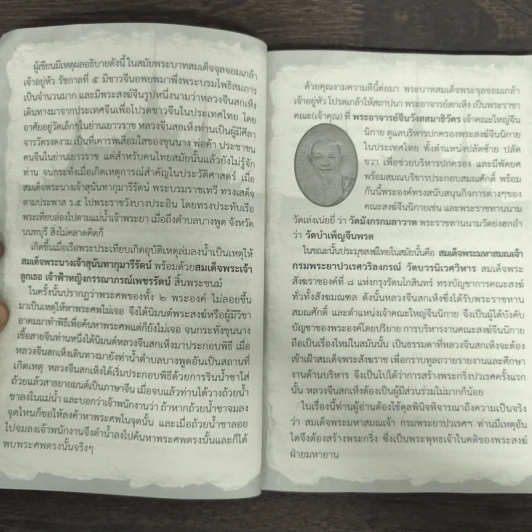 ผู้เขียนมีเหตุผลอธิบายดังนี้ ในสมัยพระบาทสมเด็จจุลจอมเกล้า
เจ้าอยู่หัว รัชกาลที่ ๕ มีชาวจีนอพยพมาพึ่งพระบรมโพธิสมภาร
เป็นจำนวนมาก และมีพระสงฆ์จีนรูปหนึ่งนามว่าหลวงจีนสกเห็ง
เดินทางมาจากประเทศจีนเพื่อโปรดชาวจีนในประเทศไทย โดย
อาศัยอยู่วัดเล็กๆ ในย่านเยาวราช หลวงจีนสกเห็งท่านเป็นผู้มีศีลา
จารวัตรงดงาม เป็นที่เคารพเลื่อมใสของขุนนาง พ่อค้า ประชาชน
คนจีนในย่านเยาวราช แต่สำหรับคนไทยสมัยนั้นแล้วยังไม่รู้จัก
ท่าน จนกระทั่งเมื่อเกิดเหตุการณ์สำคัญในประวัติศาสตร์ เมื่อ
สมเด็จพระนางเจ้าสุนันทากุมารีรัตน์ พระบรมราชเทวี ทรงเสด็จ
ตามประพาส ร.๕ ไปพระราชวังบางปะอิน โดยทรงประทับเรือ
พระเทียบล่องไปตามแม่น้ำเจ้าพระยา เมื่อถึงตำบลบางพูด จังหวัด
นนทบุรี สิ่งไม่คลาดคิดก็
เกิดขึ้นเมื่อเรือพระประเทียบเกิดอุบัติเหตุล่มลงน้ำเป็นเหตุให้
สมเด็จพระนางเจ้าสุนันทากุมารีรัตน์ พร้อมด้วยสมเด็จพระเจ้า
ลูกเธอ เจ้าฟ้าหญิงกรรณาภรณ์เพชรรัตน์ สิ้นพระชนม์
ในครั้งนั้นปรากฏว่าพระศพของทั้ง ๒ พระองค์ ไม่ลอยขึ้น
มาเป็นเหตุให้หาพระศพไม่เจอ จึงได้นิมนต์พระสงฆ์หรือผู้มีวิชา
อาคมมาทำพิธีเพื่อค้นหาพระศพแต่ก็ยังไม่เจอ จนกระทั่งขุนนาง
เชื้อสายจีนท่านหนึ่งได้นิมนต์หลวงจีนสกเห็งมาประกอบพิธี เมื่อ
หลวงจีนสกเห็งเดินทางมายังท่าน้ำตำบลบางพูดอันเป็นสถานที่
เกิดเหตุ หลวงจีนสกเห็งได้เริ่มประกอบพิธีด้วยการรินน้ำชาใส่
ถ้วยแล้วสาธยายมนต์เป็นภาษาจีน เมื่อจบแล้วท่านได้วางถ้วยน้ำ
ชาลงในแม่น้ำ และบอกว่าเจ้าพนักงานว่า ถ้าหากถ้วยน้ำชาจมลง
จุดไหนก็ขอให้ลงค้าหาพระศพในจุดนั้น และเมื่อถ้วยน้ำชาลอย
ไปจมลงเจ้าพนักงานจึงดำน้ำลงไปค้นหาพระศพตรงนั้นและก็ได้
พบพระศพตรงนั้นจริงๆ
ด้วยคุณงามความดีนี้ต่อมา พระบาทสมเด็จพระจุลจอมเกล้า
เจ้าอยู่หัว โปรดเกล้าให้สถาปนา พระอาจารย์สกเห็ง เป็นพระราชา
คณะ(เจ้าคุณ) ที่ พระอาจารย์จีนวังสสมาธิวัตร เจ้าคณะใหญ่จีน
นิกาย ดูแลบริหารปกครองพระสงฆ์จีนนิกาย
ในประเทศไทย ทั้งตำแหน่งปลัดซ้าย ปลัด
ขวา เพื่อช่วยบริหารปกครอง และมีพัดยศ
พร้อมสมณบริขารประกอบสมณศักดิ์ พร้อม
กันนี้พระองค์ทรงสนับสนุนกิจการต่างๆของ
คณะสงฆ์จีนนิกายเช่น และพระราชทานนาม
วัดเล่งเน่ยยี่ ว่า วัดมังกรกมลาวาท พระราชทานนามวัดย่งฮกยำ
ว่า วัดบำเพ็ญจีนพรต
ในขณะนั้นประมุขสงฆ์ไทยในสมัยนั้นคือ สมเด็จพระมหาสมณเจ้า
กรมพระยาปวเรศวริลงกรณ์ วัดบวรนิเวศวิหาร สมเด็จพระ
สังฆราชองค์ที่ ๘ แห่งกรุงรัตนโกสินทร์ ทรงบัญชาการคณะสงฆ์
ทั่วทั้งสังฆมณฑล ดังนั้นหลวงจีนสกเห็งซึ่งได้รับพระราชทาน
สมณศักดิ์ และตำแหน่งเจ้าคณะใหญ่จีนนิกาย จึงเป็นผู้ใต้บังคับ
บัญชาของพระองค์โดยปริยาย การบริหารงานคณะสงฆ์จีนนิกาย
ถือเป็นเรื่องใหม่ในสมัยนั้น เป็นธรรมดาที่หลวงจีนสกเห็งจะต้อง
เข้าเฝ้าสมเด็จพระสังฆราช เพื่อกราบทูลถวายรายงานและศึกษา
งานด้านบริหาร จึงเป็นไปได้ว่าการสร้างพระกริ่งปวเรศครั้งแรก
นั้น หลวงจีนสกเห็งต้องเป็นผู้มีส่วนร่วมไม่มากก็น้อย
ในเรื่องนี้ท่านผู้อ่านต้องใช้ดุลพินิจพิจารณาถึงความเป็นจริง
ว่า สมเด็จพระมหาสมณเจ้า กรมพระยาปวเรศฯ ท่านมีเหตุอัน
ใดจึงต้องสร้างพระกริ่ง ซึ่งเป็นพระพุทธเจ้าในคติของพระสงฆ์
ฝ่ายมหายาน